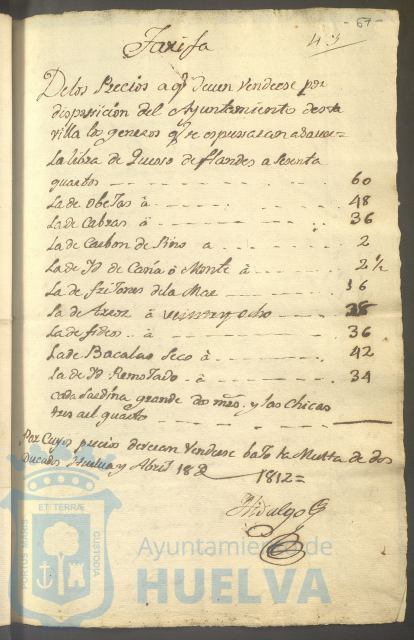 67
Tarifa
De los Precios a qe deven Venderse por
disposicion del Ayuntamiento desta
villa los generos qe se espresaran a saver=
La libra de Queso de flandes a sesenta
quartos 60
La de obejas à 48
La de Cabras à 36
La de Carbon de Pino a 2
La de Yd de Caña ò Monte à 2 1/2
La de fritones de la Mar 36
La de Arroz à veintey ocho 28
La de fideos à 36
La de Bacalao Seco à 42
La de Yd Remojado à 34
cada sardina grande dos mrs, y las chicas
tres al quarto
Por cuyos precios deveran Venderse bajo la Multa de dos
Ducados Huelva y Abril 18 D 1812=
Hidalgo
ET TERRÆ
CUSTODIA
PORTUS MARIS
Ayuntamiento de
HUELVA